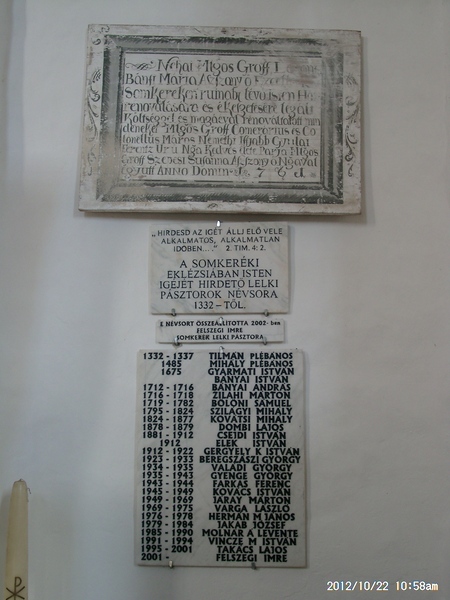 Nehai Mlgos Groff
Bánfi Mária Aszszony ő
Somkereken
renovalására és ékesgetésére
Költséggel és magával renováltatott min
deneket Mlgos Groff Camerarius és Co
lonellus Máros Németi Ifjabb Gyulai
Ferentz Ur ő Nga Kedves
Groff Susánna Aszszony ő Ngával
együtt ANNO Domin
„HIRDESD AZ IGÉT ÁLLJ ELŐ VELE
ALKALMATOS, ALKALMATLAN
IDŐBEN...." 2. TIM. 4: 2.
A SOMKERÉKI
EKLÉZSIÁBAN ISTEN
IGÉJÉT HIRDETŐ LELKI
PÁSZTOROK NÉVSORA
1332 – TŐL.
E NÉVSORT ÖSSZEÁLLÍTOTTA 2002- ben
FELSZEGI IMRE
SOMKERÉK LELKI PÁSZTORA
1332 - 1337 TILMAN PLÉBÁNOS
1485 MIHÁLY PLÉBÁNOS
1675 GYARMATI ISTVÁN
BÁNYAI ISTVÁN
1712 - 1716 BÁNYAI ANDRÁS
1716 - 1718 ZILAHI MÁRTON
1719 - 1782 BÖLÖNI SÁMUEL
1795 - 1824 SZILÁGYI MIHÁLY
1824 - 1877 KOVÁTSI MIHÁLY
1878 - 1879 DOMBI LAJOS
1881 - 1912 CSEJDI ISTVÁN
1912 ELEK ISTVÁN
1912 - 1922 GERGELY K ISTVÁN
1923 - 1933 BEREGSZÁSZI GYÖRGY
1934 - 1935 VALÁDI GYÖRGY
1935 - 1943 GYENGE GYÖRGY
1943 - 1944 FARKAS FERENC
1945 - 1949 KOVÁCS ISTVÁN
1949 - 1969 JÁRAY MÁRTON
1969 - 1975 VARGA LÁSZLÓ
1976 - 1978 HERMÁN M JÁNOS
1979 - 1984 JAKAB JÓZSEF
1985 - 1990 MOLNÁR A LEVENTE
1991 - 1994 VINCZE M ISTVÁN
1995 - 2001 TAKÁCS LAJOS
2001 - FELSZEGI IMRE
2012/10/22 10:58am